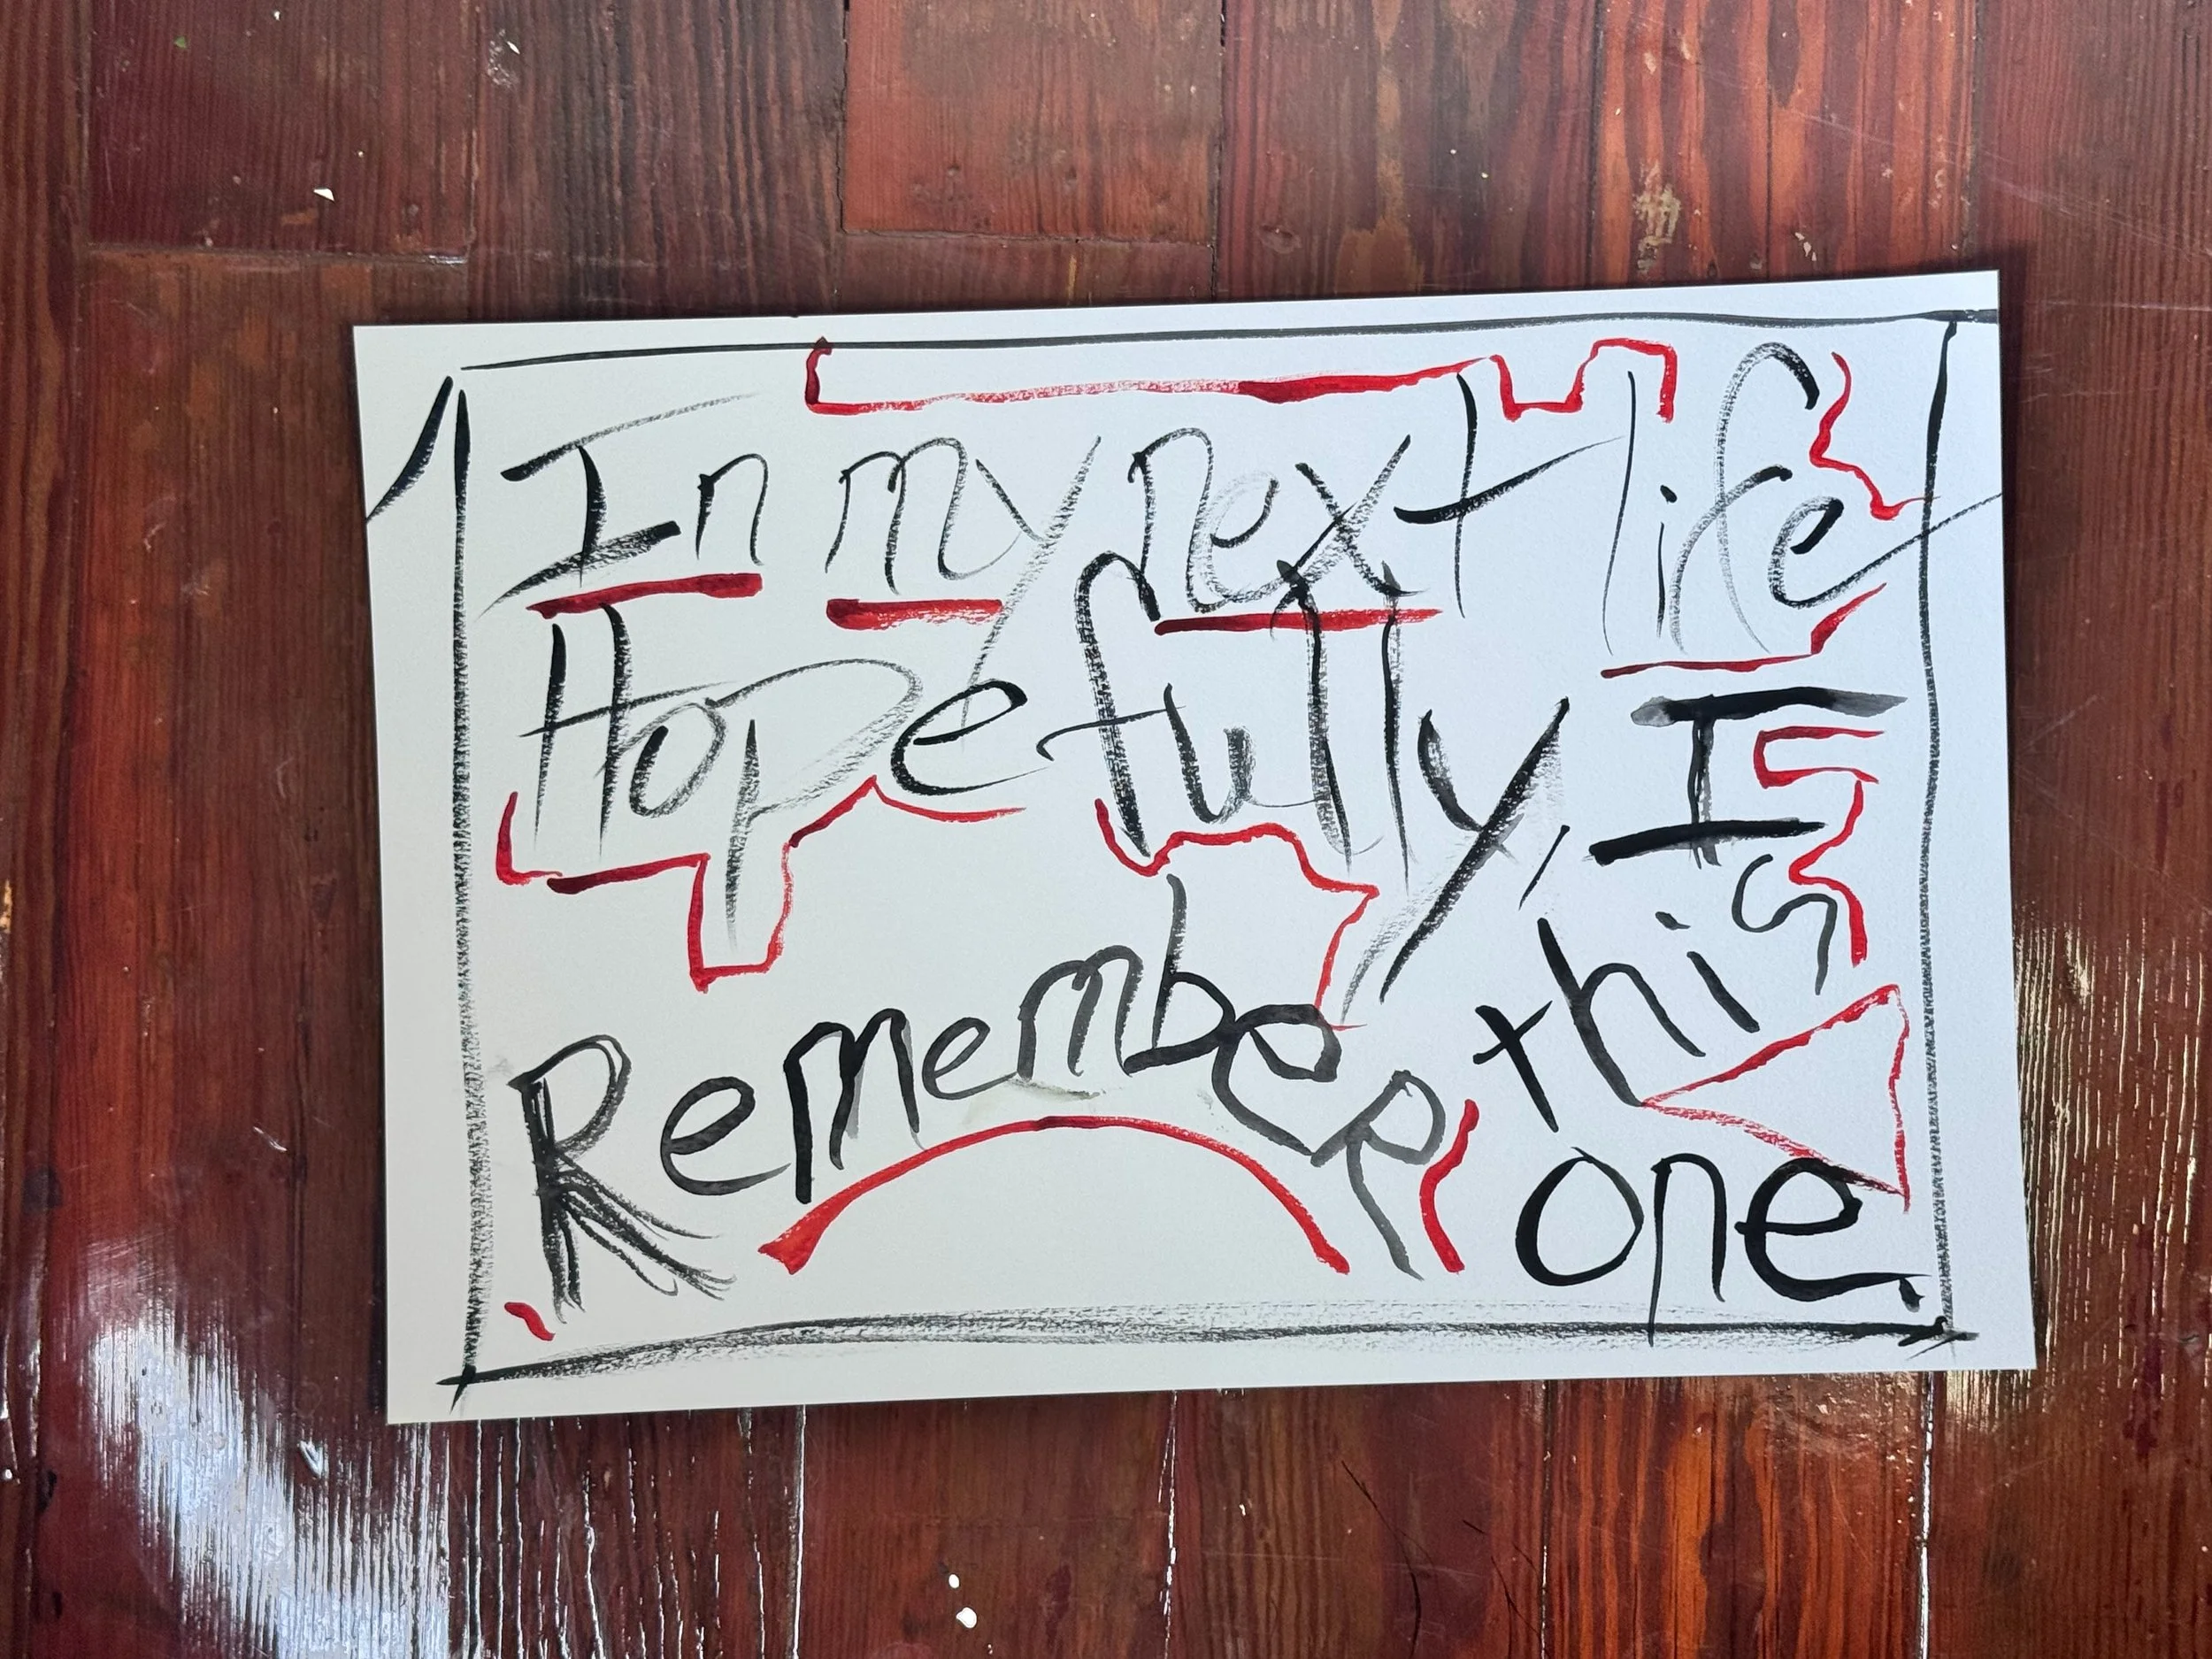 In my next life
Hopefully, I
Remember this
one.